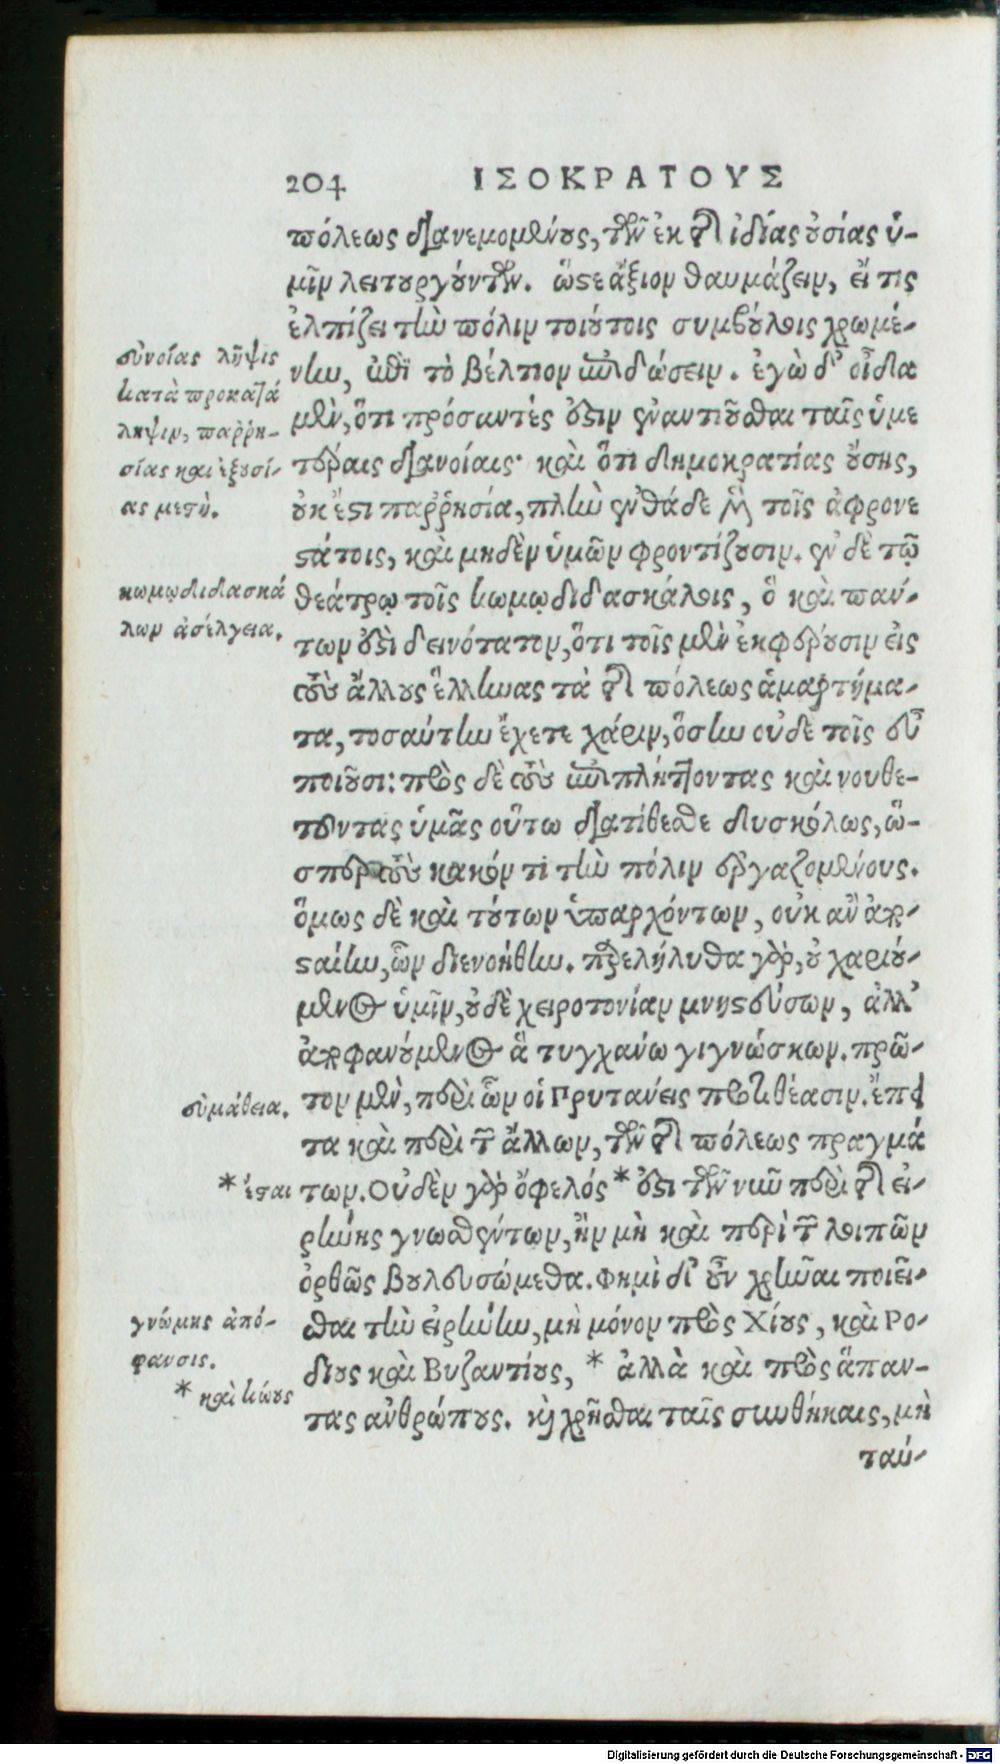 204 ΙΣΟΚΡΑΤΟΥΣ
πόλεως διανεμομένους, τῶν ἐκ τῆς ἰδίας οὐσίας ὑ-
μῖν λειτουργούντων. ὥστε ἄξιον θαυμάζειν, εἴ τις
ἐλπίζει τὴν πόλιν τοιούτοις συμβούλοις χρωμέ-
νην, ἐπὶ τὸ βέλτιον ἐπιδώσειν. ἐγὼ δ' οἶδα
μὲν, ὅτι πρόσαντές ἐστιν ἐναντιοῦσθαι ταῖς ὑμε
τέραις διανοίαις· καὶ ὅτι δημοκρατίας οὔσης,
οὐκ ἔστι παῤῥησία, πλὴν ἐνθάδε μὲν τοῖς ἀφρονε
στάτοις, καὶ μηδὲν ὑμῶν φροντίζουσιν. ἐν δὲ τῷ
θεάτρῳ τοῖς κωμῳδιδασκάλοις, ὃ καὶ πάν-
των ἐστὶ δεινότατον, ὅτι τοῖς μὲν ἐκφέρουσιν εἰς
τοὺς ἄλλους ἕλληνας τὰ τῆς πόλεως ἁμαρτήμα-
τα, τοσαύτην ἔχετε χάριν, ὅσην οὐδὲ τοῖς εὖ
ποιοῦσι: πρὸς δὲ τοὺς ἐπιπλήττοντας καὶ νουθε-
τοῦντας ὑμᾶς οὕτω διατίθεσθε δυσκόλως, ὥ-
σπερ τοὺς κακόν τι τὴν πόλιν ἐργαζομένους.
ὅμως δὲ καὶ τούτων ὑπαρχόντων, οὐκ ἂν ἀπο-
σταίην, ὧν διενοήθην. παρελήλυθα γὰρ, οὐ χαριού-
μενος ὑμῖν, οὐδὲ χειροτονίαν μνηστεύσων, ἀλλ'
ἀποφανούμενος ἃ τυγχάνω γιγνώσκων. πρῶ-
τον μὲν, περὶ ὧν οἱ Πρυτάνεις προτιθέασιν. ἔπει
τα καὶ περὶ τῶν ἄλλων, τῶν τῆς πόλεως πραγμά
των. Οὐδὲν γὰρ ὄφελός * ἐστι τῶν νῦν περὶ τῆς εἰ-
ρήνης γνωσθέντων, ἢν μὴ καὶ περὶ τῶν λοιπῶν
ὀρθῶς βουλευσώμεθα. Φημὶ δ' οὖν χρῆναι ποιεῖ-
σθαι τὴν εἰρήνην, μὴ μόνον πρὸς Χίους, καὶ Ρο-
δίους καὶ Βυζαντίους, * ἀλλὰ καὶ πρὸς ἅπαν-
τας ἀνθρώπους. καὶ χρῆσθαι ταῖς συνθήκαις, μὴ
ταύ-
εὐνοίας λῆψις
κατὰ προκατά
ληψιν, παῤῥη-
σίας καὶ ἐξουσί-
ας μεστή.
κωμῳδιδασκά
λων ἀσέλγεια.
εὐμάθεια.
* ἔσται
γνώμης ἀπό-
φανσις.
* καὶ κώους
Digitalisierung gefördert durch die Deutsche Forschungsgemeinschaft - DFG